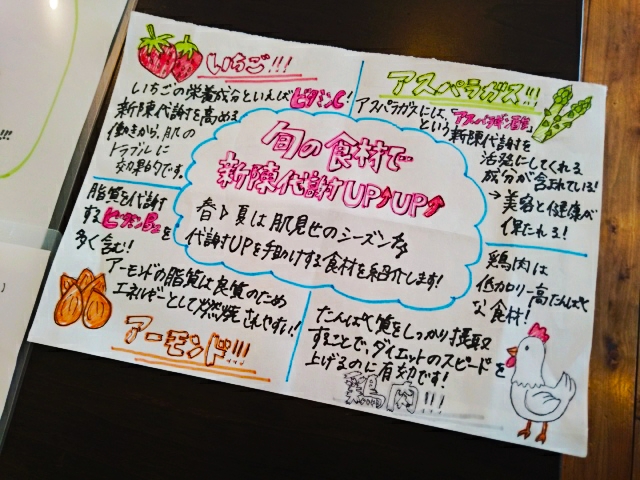 いちご!!!
いちごの栄養成分といえばビタミンC!
新陳代謝を高める
働きから、肌の
トラブルに
効果的です。
アスパラガス!!!
アスパラガスには、「アスパラギン酸」
という新陳代謝を
活発にしてくれる
成分が含まれている!
→美容と健康が
保たれる!
旬の食材で
新陳代謝UP↑UP↑
春▷夏は肌見せのシーズン
代謝UPを手助けする食材を紹介します!
脂質を代謝
するビタミンB2を
多く含む!
アーモンドの脂質は良質のため
エネルギーとして燃焼されやすい!
アーモンド!!!
鶏肉は
低カロリー高たんぱく
な食材!
たんぱく質をしっかり摂取
することで、ダイエットのスピードを
上げるのに有効です!
鶏肉!!!
!!!